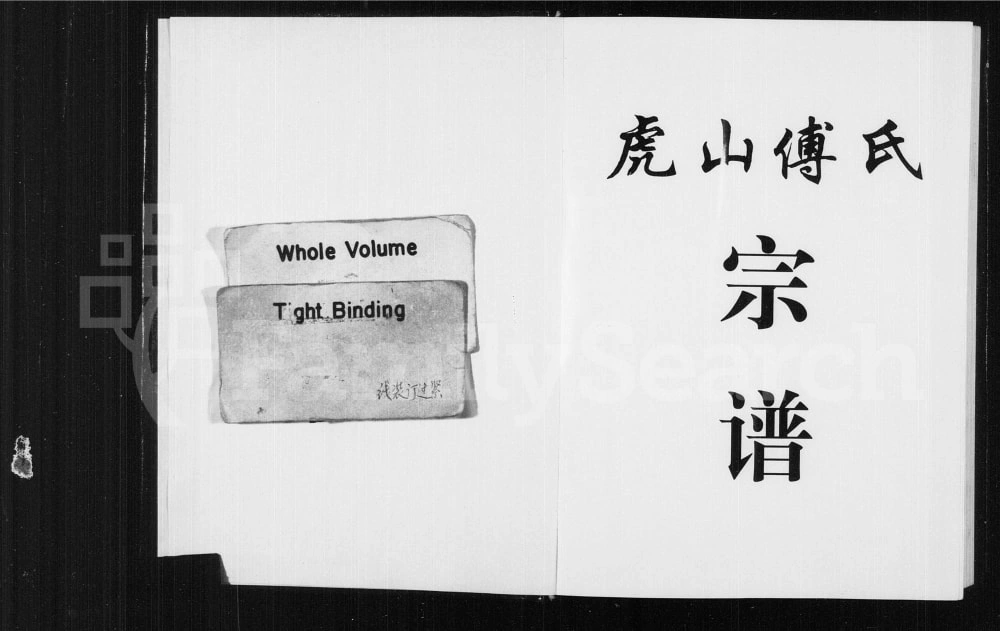 Whole Volume
T ght Binding
线装订过紧
虎山傅氏
宗
谱
FamilySearch